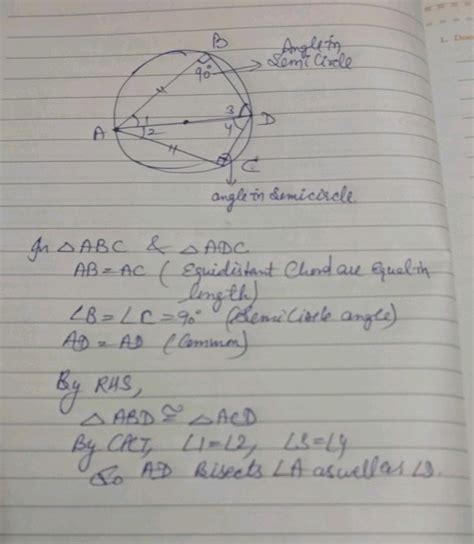 1. Does
B
Angle in
Semi Circle
90°
A
1
2
3
4
D
C
angle in Semicircle
In △ABC & △ADC
AB = AC ( Equidistant Chord are Equal in
length)
∠B = ∠C = 90° (Semi Circle angle)
AD = AD (Common)
By RHS,
△ABD ≅ △ACD
By CPCT, ∠1=∠2, ∠3=∠4
So AD Bisects ∠A as well as ∠D.